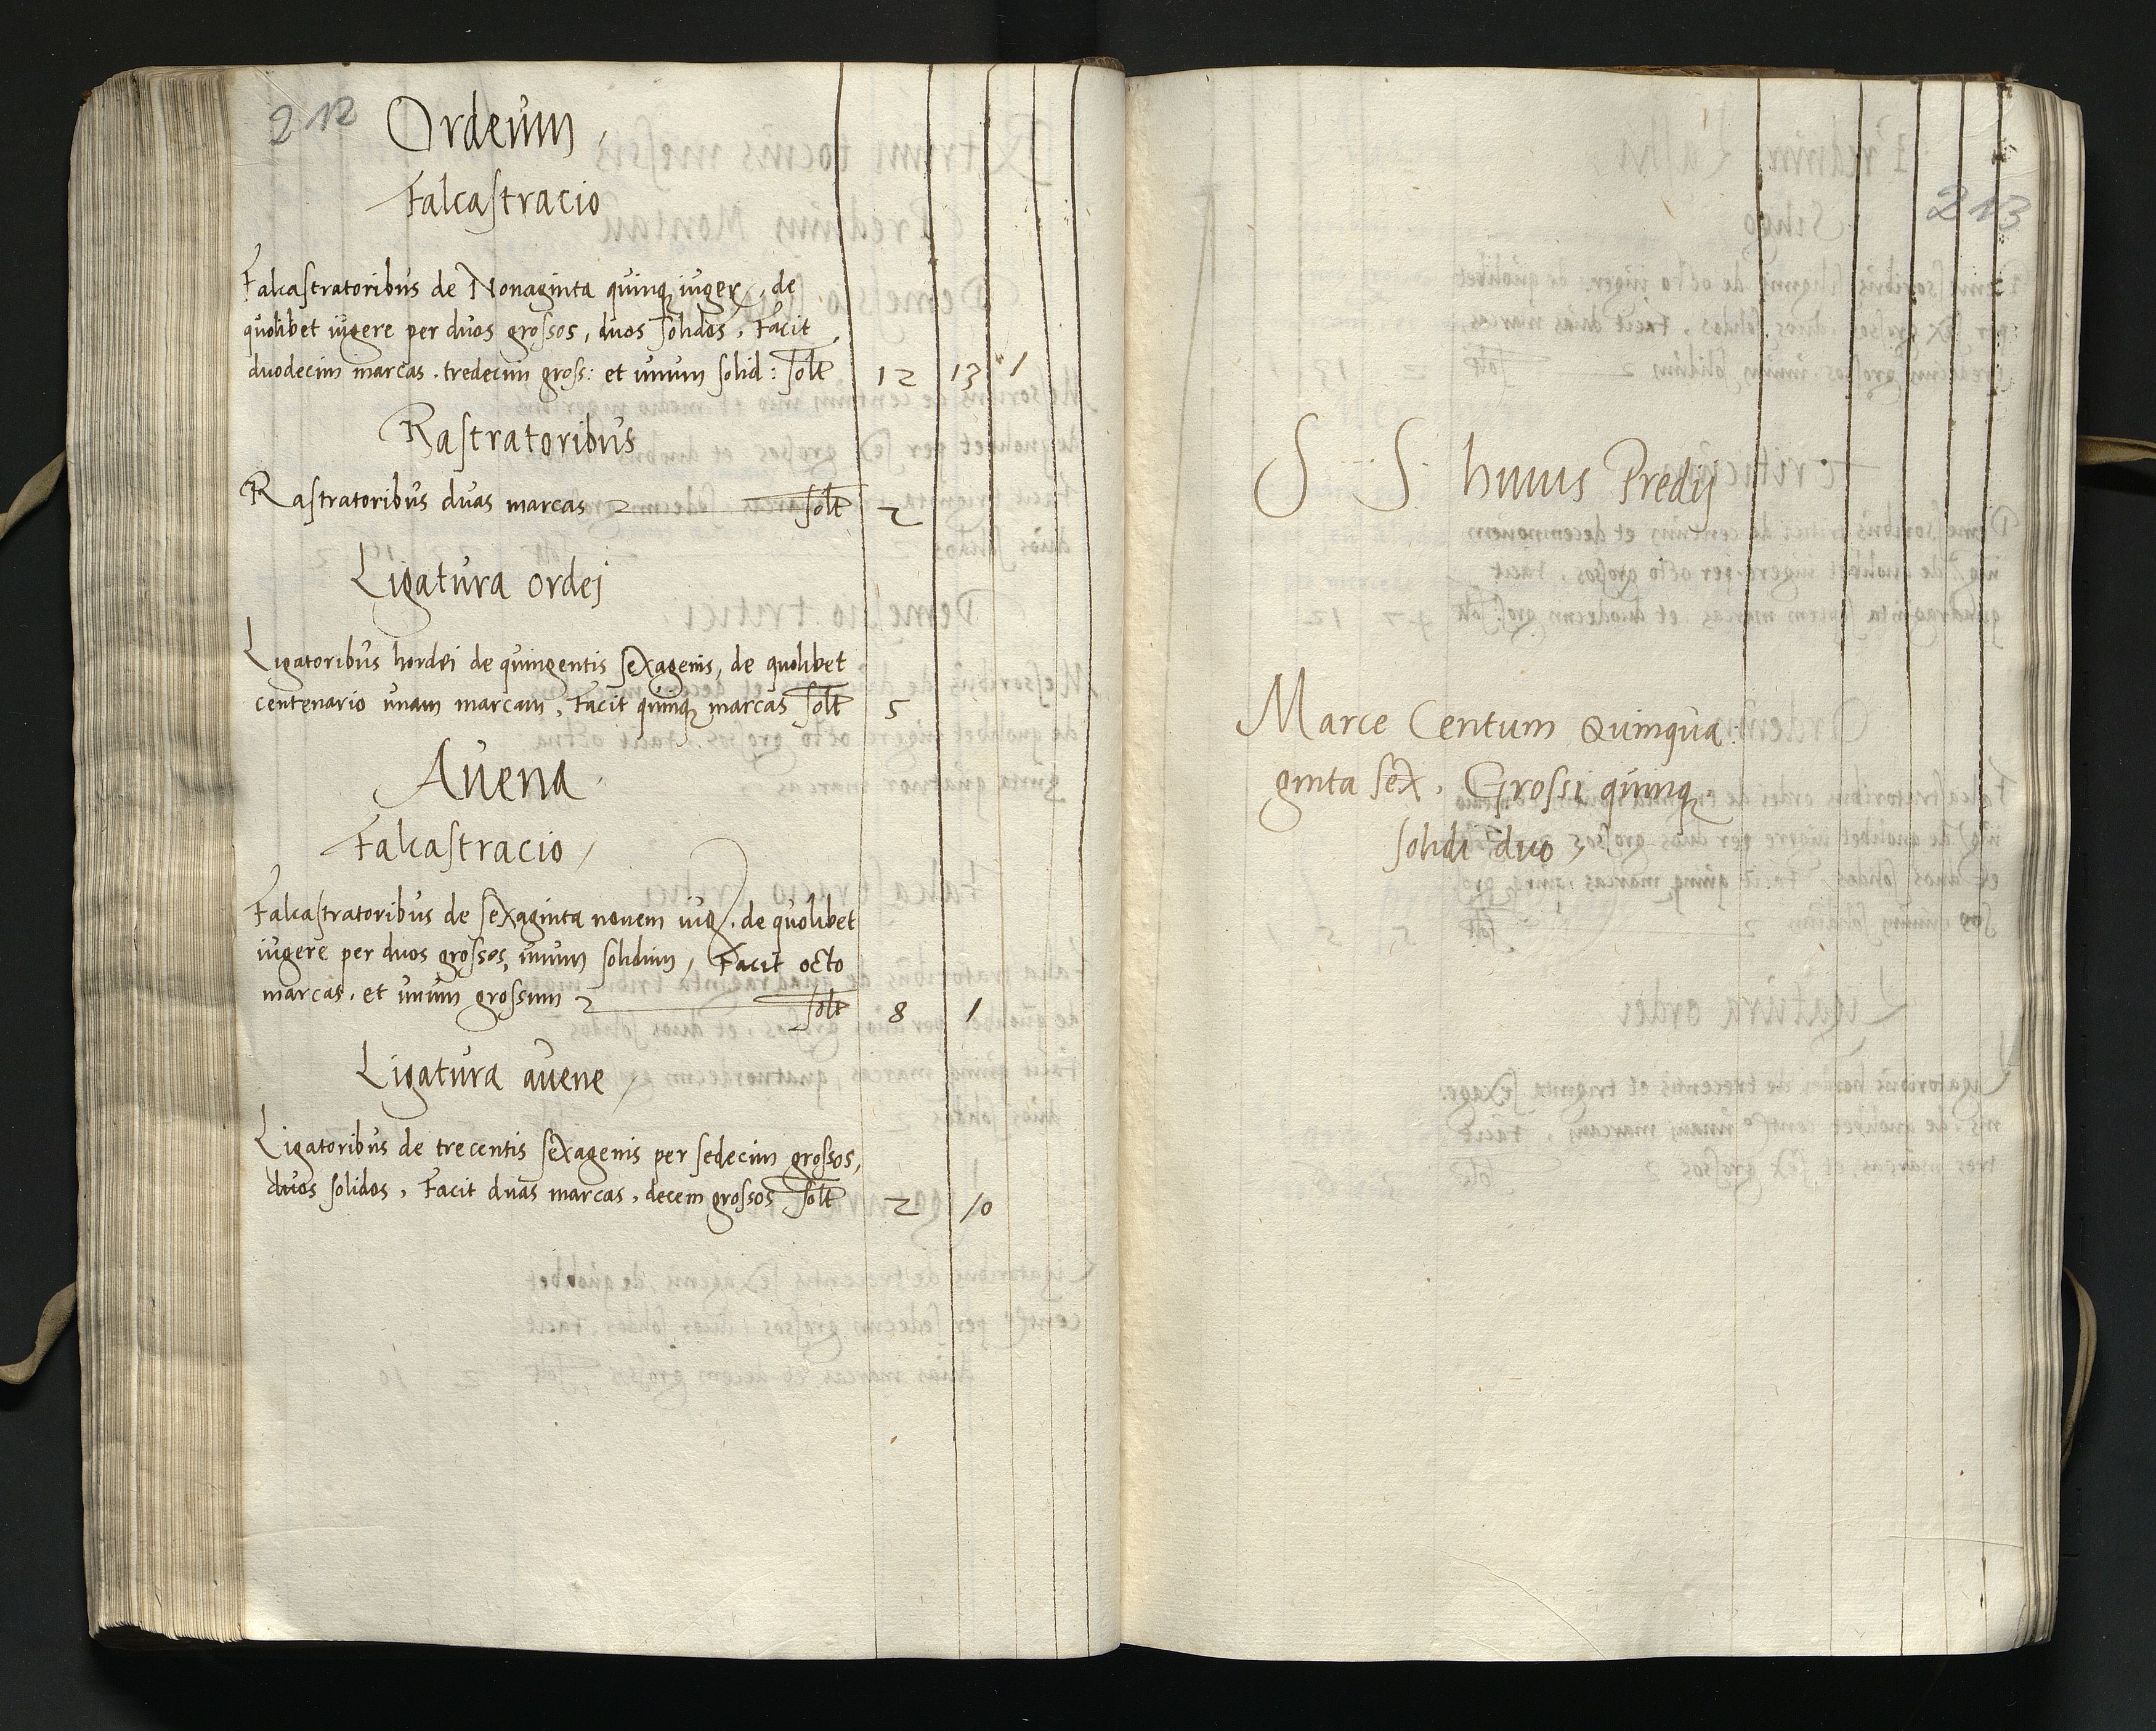 212
Ordeum,
Falcastracio
Falcastratoribus de Nonaginta quinq iuger, de
quolibet iugere per duos grossos, duos solidos, Facit
duodecim marcas. tredecim gross: et unum solid: solt 12 13 1
Rastratoribus
Rastratoribus duas marcas solt 2
Ligatura ordej
Ligatoribus hordei de quingentis sexagenis, de quolibet
centenario unam marcam, Facit quinq marcas solt 5
Auena
Falcastracio
Falcastratoribus de sexaginta novem iug, de quolibet
iugere per duos grossos, unum solidum, Facit octo
marcas. et unum grossum solt 8 1
Ligatura auene
Ligatoribus de trecentis sexagenis per sedecim grossos,
duos solidos, Facit duas marcas, decem grossos solt 2 10
213
S S huius Predij
Marce Centum Quinqua:
ginta sex, Grossi quinq
solidi duo